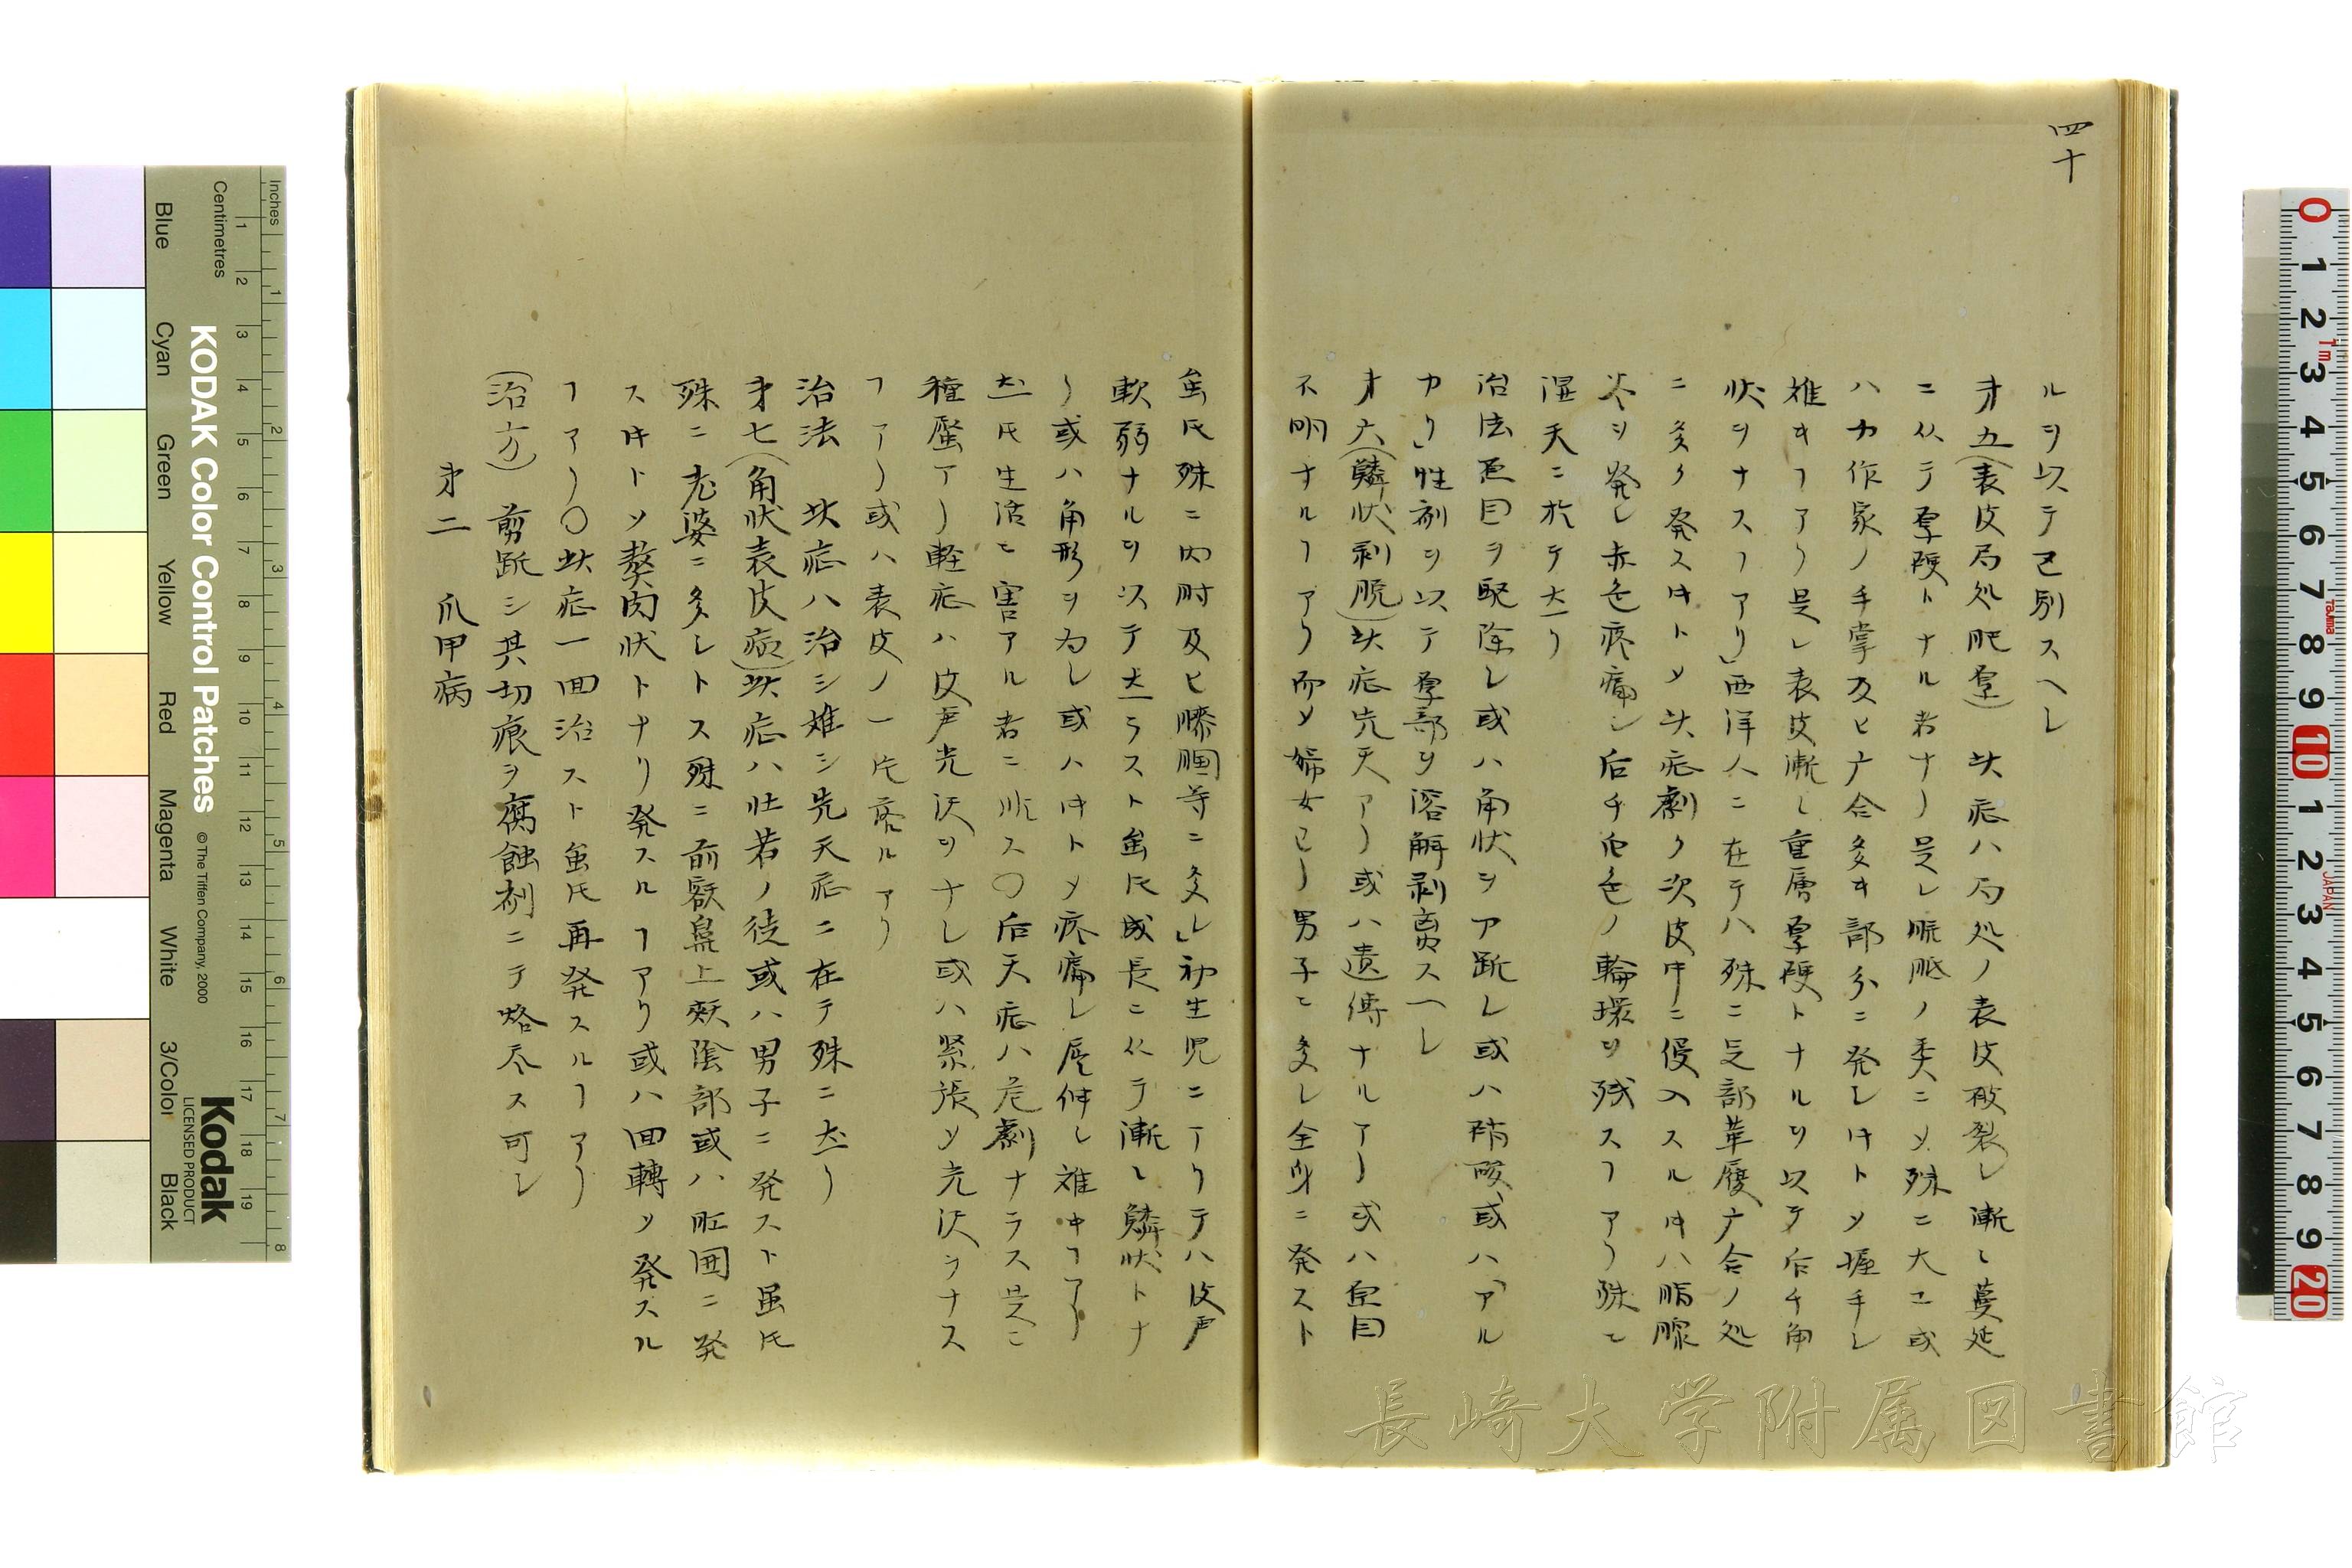 四十
ルヲ以テ区別スヘレ
才五(表皮局処肥厚) 此症ハ局処ノ表皮皲裂レ漸〻蔓延
ニ从テ厚硬トナル者ナリ是レ胼胝ノ类ニメ殊ニ大工或
ハ力作家ノ手掌及ヒ广合多キ部分ニ発レ𪜈トメ握手レ
难キヿアリ是レ表皮漸〻重層厚硬トナルヲ以テ后チ角
状ヲナスヿアリ」西洋人ニ在テハ殊ニ足部革履广合ノ処
ニ多ク発ス𪜈トメ此症劇ク次皮中ニ侵入スル𪜈ハ脂腺
炎ヲ発レ赤色疼痛シ后チ白色ノ輪環ヲ残スヿアリ殊ニ
湿天ニ於テ太リ
治法 原因ヲ駆除レ或ハ角状ヲア
レ或ハ硝酸或ハ「アル
カリ」性剤ヲ以テ厚部ヲ溶解剥离スヘレ
才六(鱗状剥脱)此症先天アリ或ハ遺傳ナルアリ或ハ原因
不明ナルヿアリ而メ婦女ヨリ男子ニ多レ全身ニ発スト
虽𪜈殊ニ内肘及ヒ膝膕等ニ多レ」初生児ニアリテハ皮声
軟弱ナルヲ以テ太ラスト虽𪜈成長ニ从テ漸〻鱗状トナ
リ或ハ角形ヲ为レ或ハ𪜈トメ疼痛レ屈伸レ难キヿアリ
太𪜈生活ニ害アル者ニ非ス〇后天症ハ危劇ナラス是ニ
種〻アリ軽症ハ皮声光沢ヲナレ或ハ緊張メ光沢ヲナス
ヿアリ或ハ表皮ノ一片落ルアリ
治法 此症ハ治シ难シ先天症ニ在テ殊ニ太リ
才七(角状表皮病)此症ハ壮若ノ徒或ハ男子ニ発スト虽𪜈
殊ニ老婆ニ多レトス殊ニ前額鼻上頰陰部或ハ肛囲ニ発
ス𪜈トメ獘肉状トナリ発スルヿアリ或ハ回轉メ発スル
ヿアリ〇此症一回治スト虽𪜈再発スルヿアリ
(治方) 剪
シ其切痕ヲ腐蝕剤ニテ烙尽ス可レ
才二 爪甲病
KODAK Color Control Patches
© The Tiffen Company, 2000
Kodak
LICENSED PRODUCT
Inches
Centimetres
Blue
Cyan
Green
Yellow
Red
Magenta
White
3/Color
Black
長崎大学附属図書館